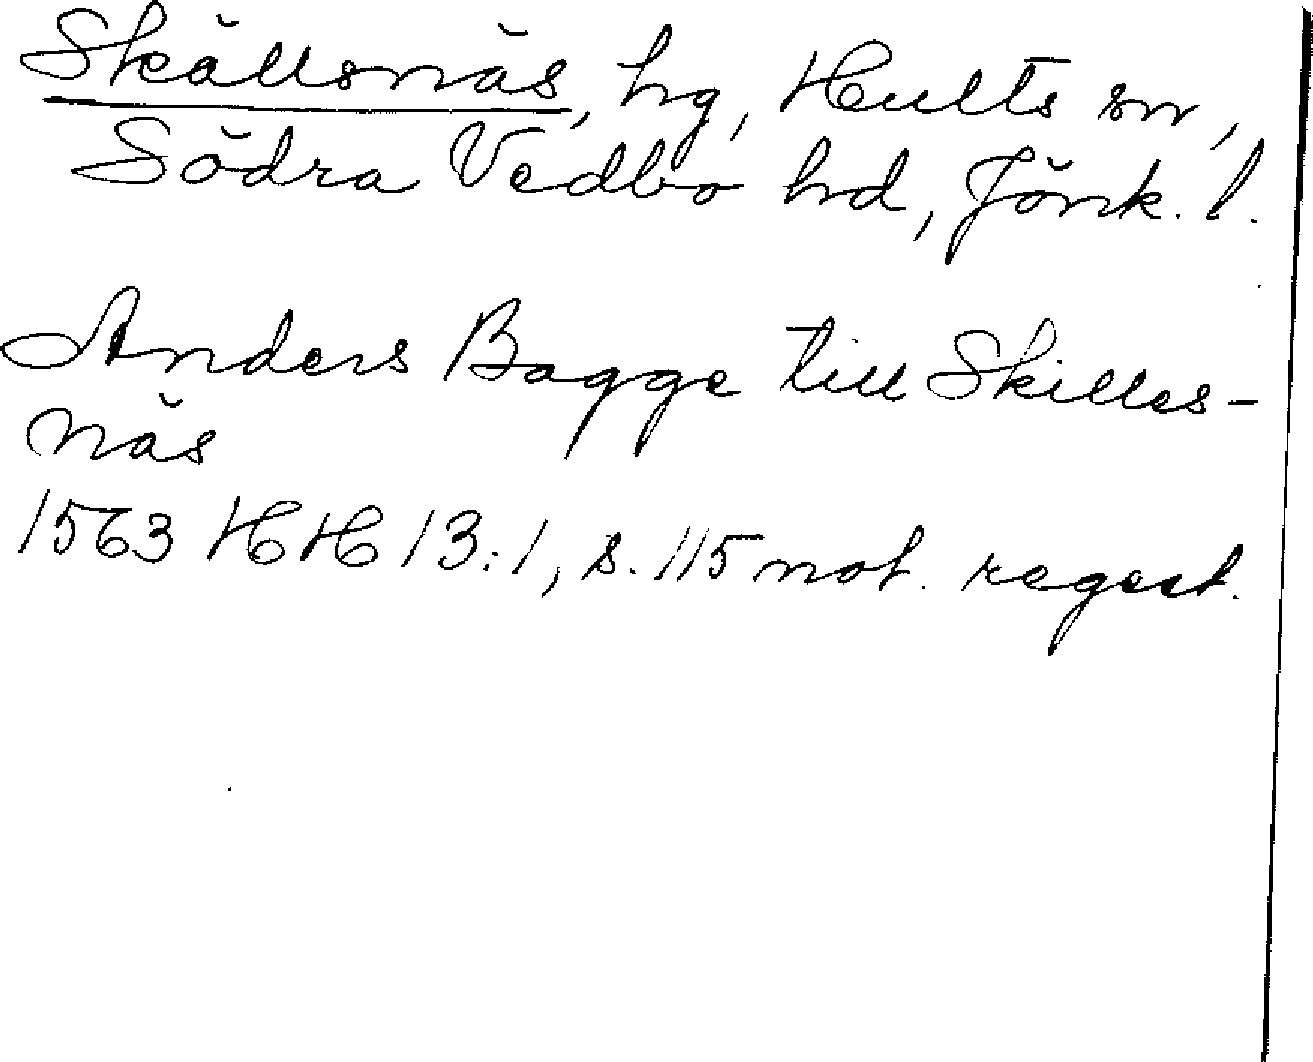 Skällsnäs, hg, Hults sn,
Södra Vedbo hd, Jönk. l.
Anders Bagge till Skilles-
näs
1563 HH 13:1, s. 115 not. regest.